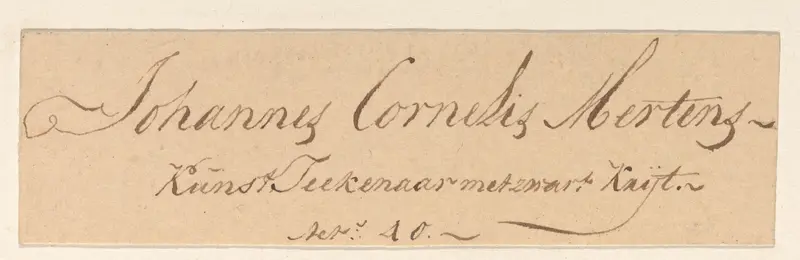 Johannes Cornelis Mertens
Kunst Teekenaar met zwart Krijt.
Net. 40.